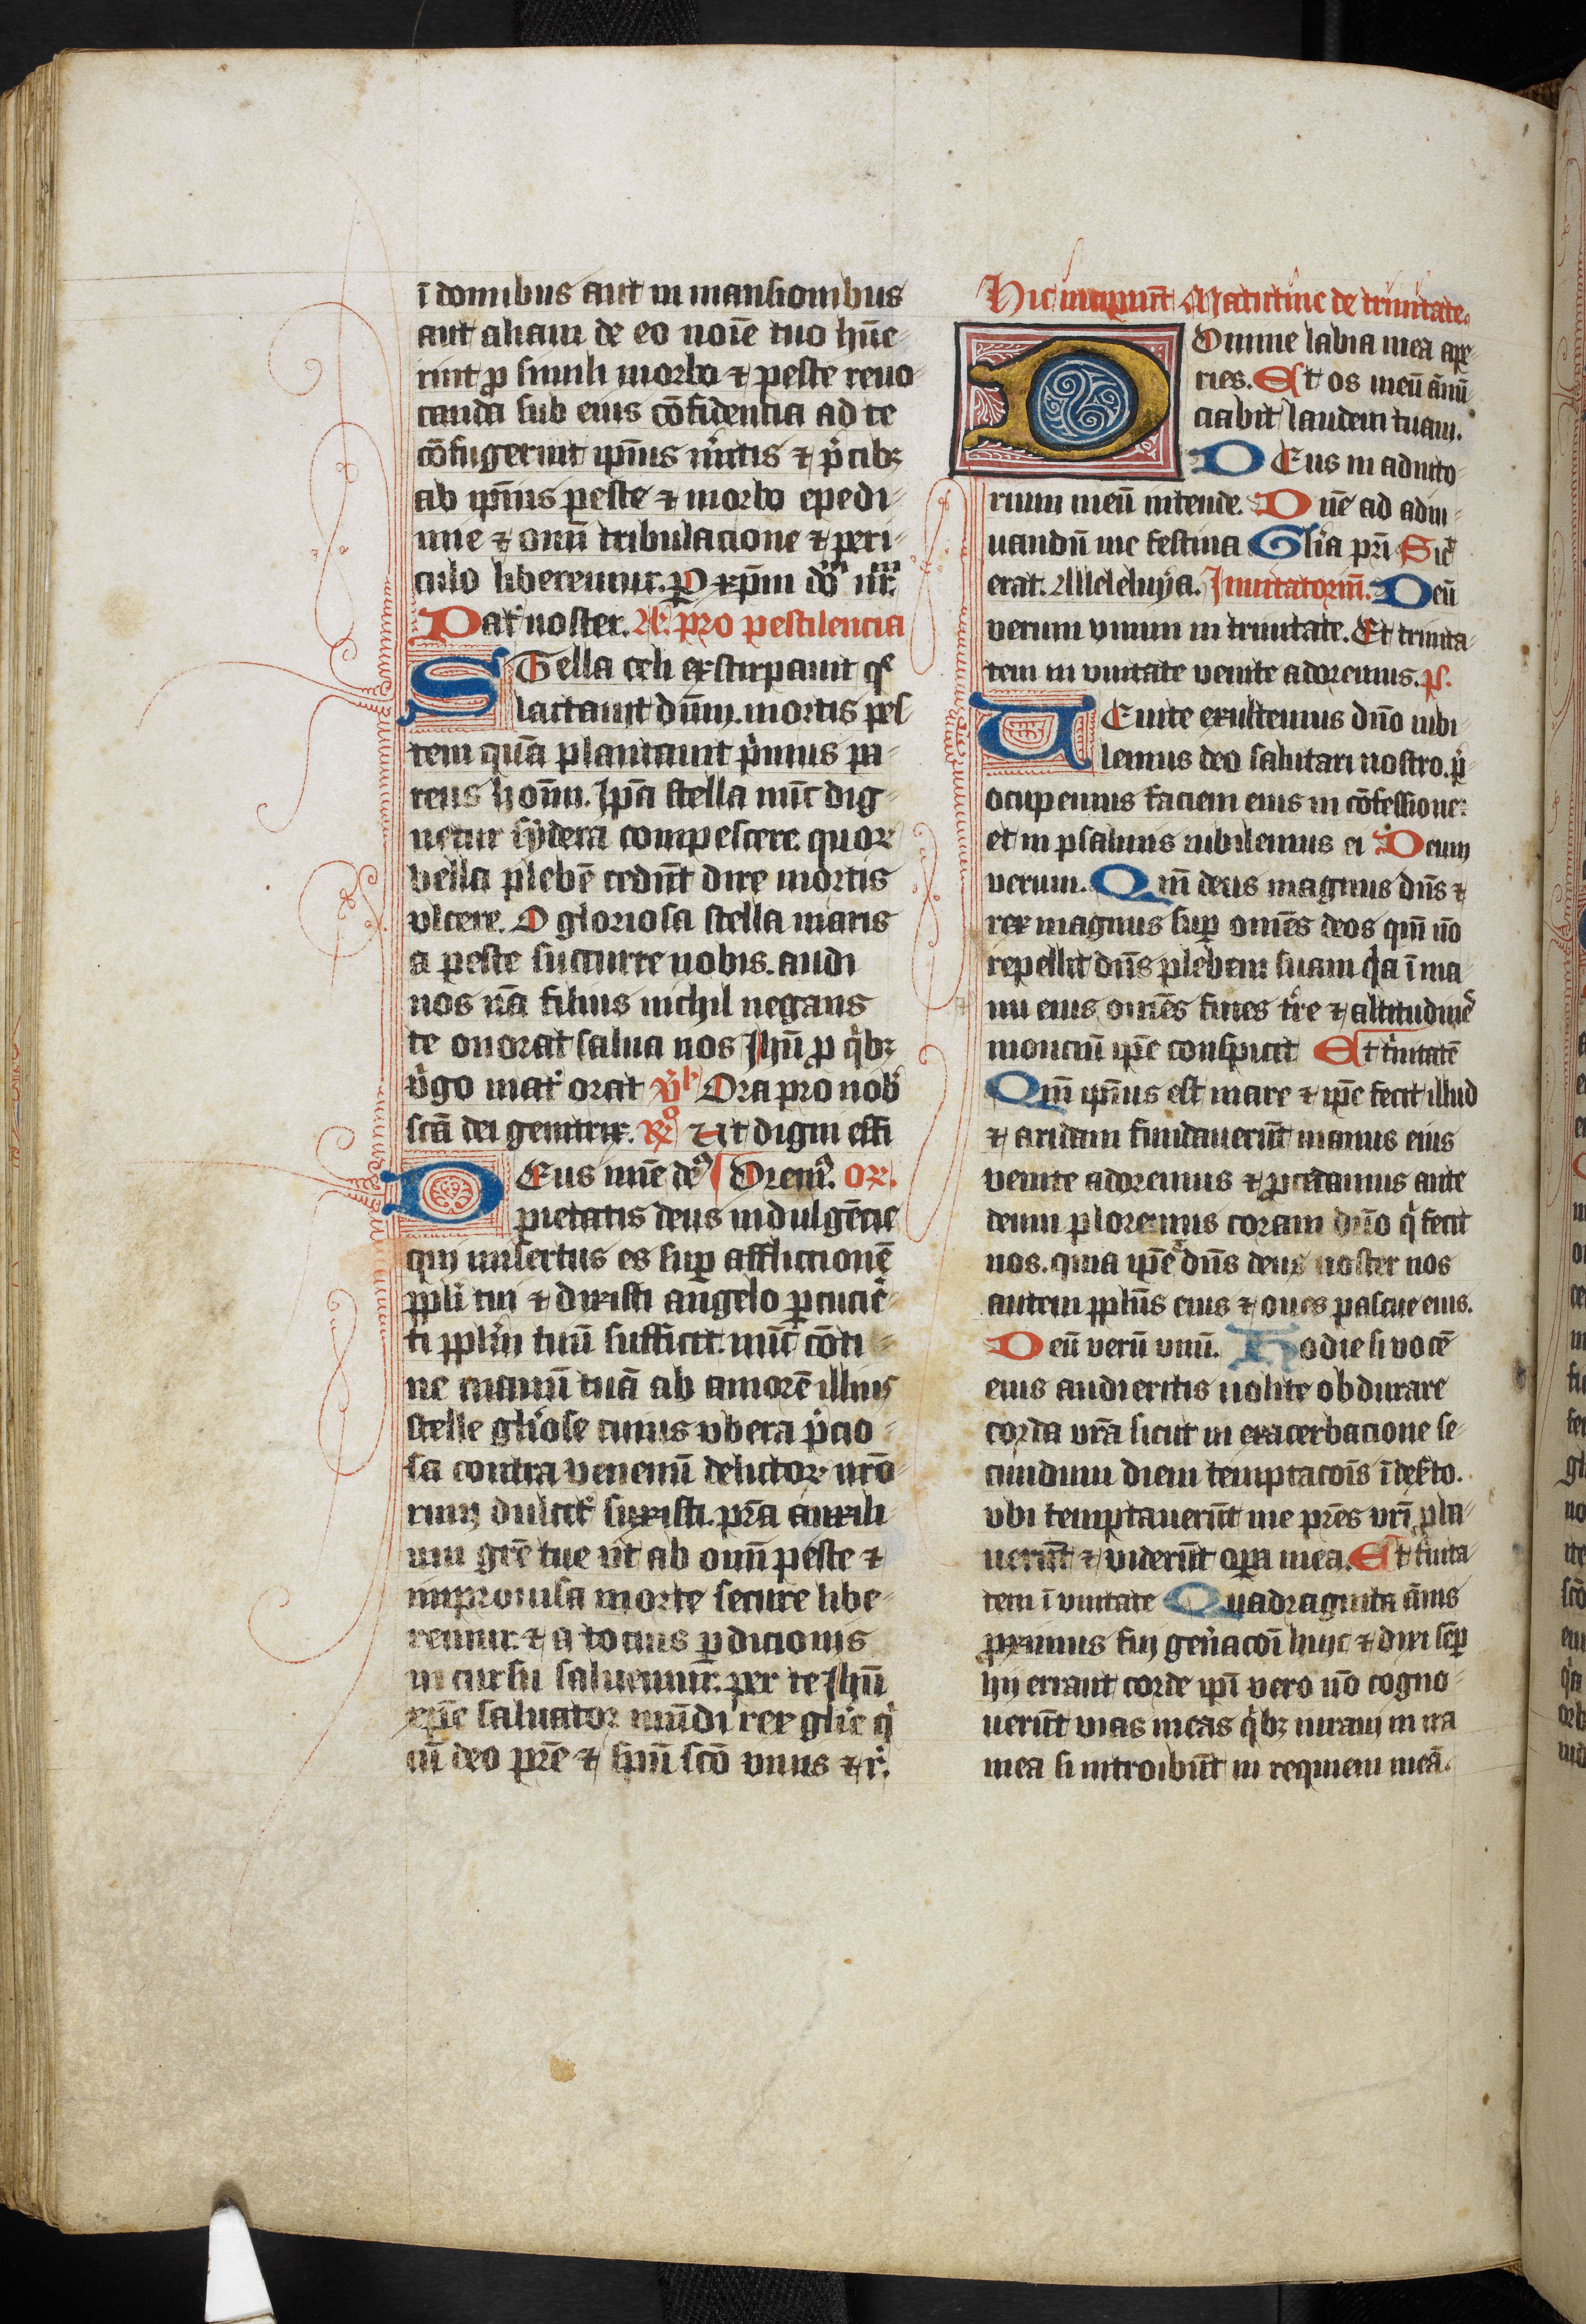 ī domibus aut in mansionibus
aut aliam de eo noīe tuo hūe-
rint ꝓ simili morbo ⁊ peste reuo-
canda sub eius cōfidencia ad te
cōfugerint ip̄ius m̄itis ⁊ p̄cibꝫ
ab ip̄ius peste ⁊ morbo epedi-
mie ⁊ om̄i tribulacione ⁊ peri-
culo liberemur. ꝑ xp̄m do nr̄m
Pat̄ noster. A. pro pestilencia
STella celi exstirpauit q̄
lactauit dūm. mortis pes
tem quā plantauit p̄mus pa-
rens hoīm. Ip̄a stella nūc dig-
netur sydera compescere quoꝝ
bella plebē cedūt dire mortis
vlcere. O gloriosa stella maris
a peste succurre nobis. audi
nos nā filius nichil negans
te honorat salua nos Jhū ꝓ q̄bꝫ
v̄go mat̄ orat v̄ Ora pro nob̄
scā dei genitrix. R̄ Ut digni effi
DEus mīe de Orem̄. or.
pietatis deus indulgēcie
qui misertus es suꝑ afflictionē
ppli tui ⁊ dixisti angelo ꝑcucie-
ti pplm̄ tuū sufficit. nūc cōti-
ne manū tuā ab amorē illius
stelle gliōse cuius vbera p̄cio-
sa contra venenū delictoꝝ nrō-
rum dulcit̄ suxisti. prā auxili-
um grē tue vt ab om̄i peste ⁊
improuisa morte secure libe-
remur. ⁊ a tocius ꝑdicionis
in cursu saluemur. per te Jhū
xp̄e saluator mūdi rex gliē q̄
cū deo prē ⁊ spū scō viuis ⁊ r̄.
Hic incipiūt Matutine de trinitate.
DOmine labia mea ape-
ries. Et os meū ānū-
ciabit laudem tuam.
DEus in adiuto-
rium meū intende. Dn̄e ad adiu-
uandū me festina Glīa pr̄i Sic̄
erat. Alleleluya. Inuitatoriū. Deū
verum vnum in trinitate. Et trinita-
tem in vnitate venite adoremus. ps.
UEnite exultemus dn̄o iubi-
lemus deo salutari nostro. p̄-
ocupemus faciem eius in cōfessione:
et in psalmis iubilemus ei Deum
verum. Qm̄ deus magnus dn̄s ⁊
rex magnus suꝑ omēs deos qm̄ nō
repellit dn̄s plebem suam q̄a ī ma-
nu eius omēs fines tr̄e ⁊ altitudiē
monciū ip̄e conspicit Et t̄nitatē
Qm̄ ip̄ius est mare ⁊ ip̄e fecit illud
⁊ aridam fundauerūt manus eius
venite adoremus ⁊ ꝓcidamus ante
deum ploremus coram dn̄o q̄ fecit
nos. quia ip̄e dn̄s deus noster nos
autem pplūs eius ⁊ oues pascue eius.
Deū verū vnū. Hodie si vocē
eius audieritis nolite obdurare
corda vrā sicut in exacerbacione se-
cundum diem temptacoīs ī deẜto.
vbi temptauerūt me prēs vrī ꝓba-
uerūt ⁊ viderūt oꝑa mea. Et t̄nita-
tem ī vnitate Quadraginta ānis
ꝓximus fui gen̄acoī huic ⁊ dixi sēꝑ
hij errant corde ip̄i vero nō cogno-
uerūt vias meas q̄bꝫ iuraui in ira
mea si introibūt in requiem meā.